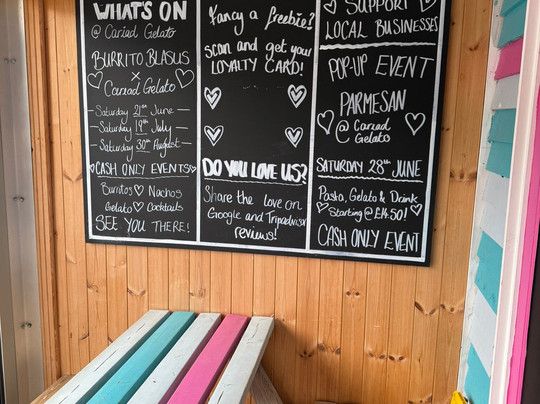 WHAT'S ON
@ Cariad Gelato
BURRITO BLASUS
X
Cariad Gelato
Saturday 21st June
Saturday 19th July
Saturday 30th August
CASH ONLY EVENTS!
Burritos Nachos
Gelato Cocktails
SEE YOU THERE!
Fancy a freebie?
Scan and get your
LOYALTY CARD!
DO YOU LOVE US?
Share the love on
Google and Tripadvisor
reviews!
SUPPORT
LOCAL BUSINESSES
POP-UP EVENT
PARMESAN
@ Cariad
Gelato
SATURDAY 28th JUNE
Pasta, Gelato & Drink
Starting @ £14.50!
CASH ONLY EVENT